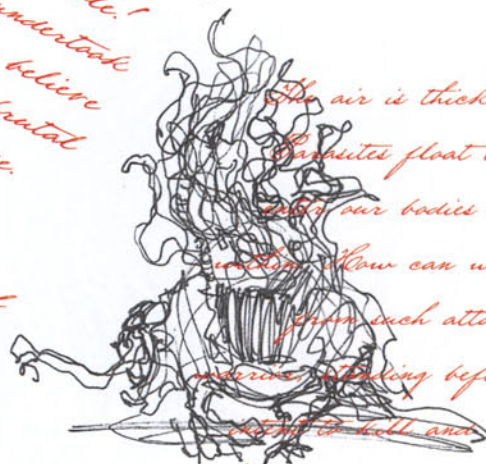 undertook
believe
brutal
The air is thick
Parasites float
enter our bodies
within. How can
from such
warrior, standing
intent to kill and